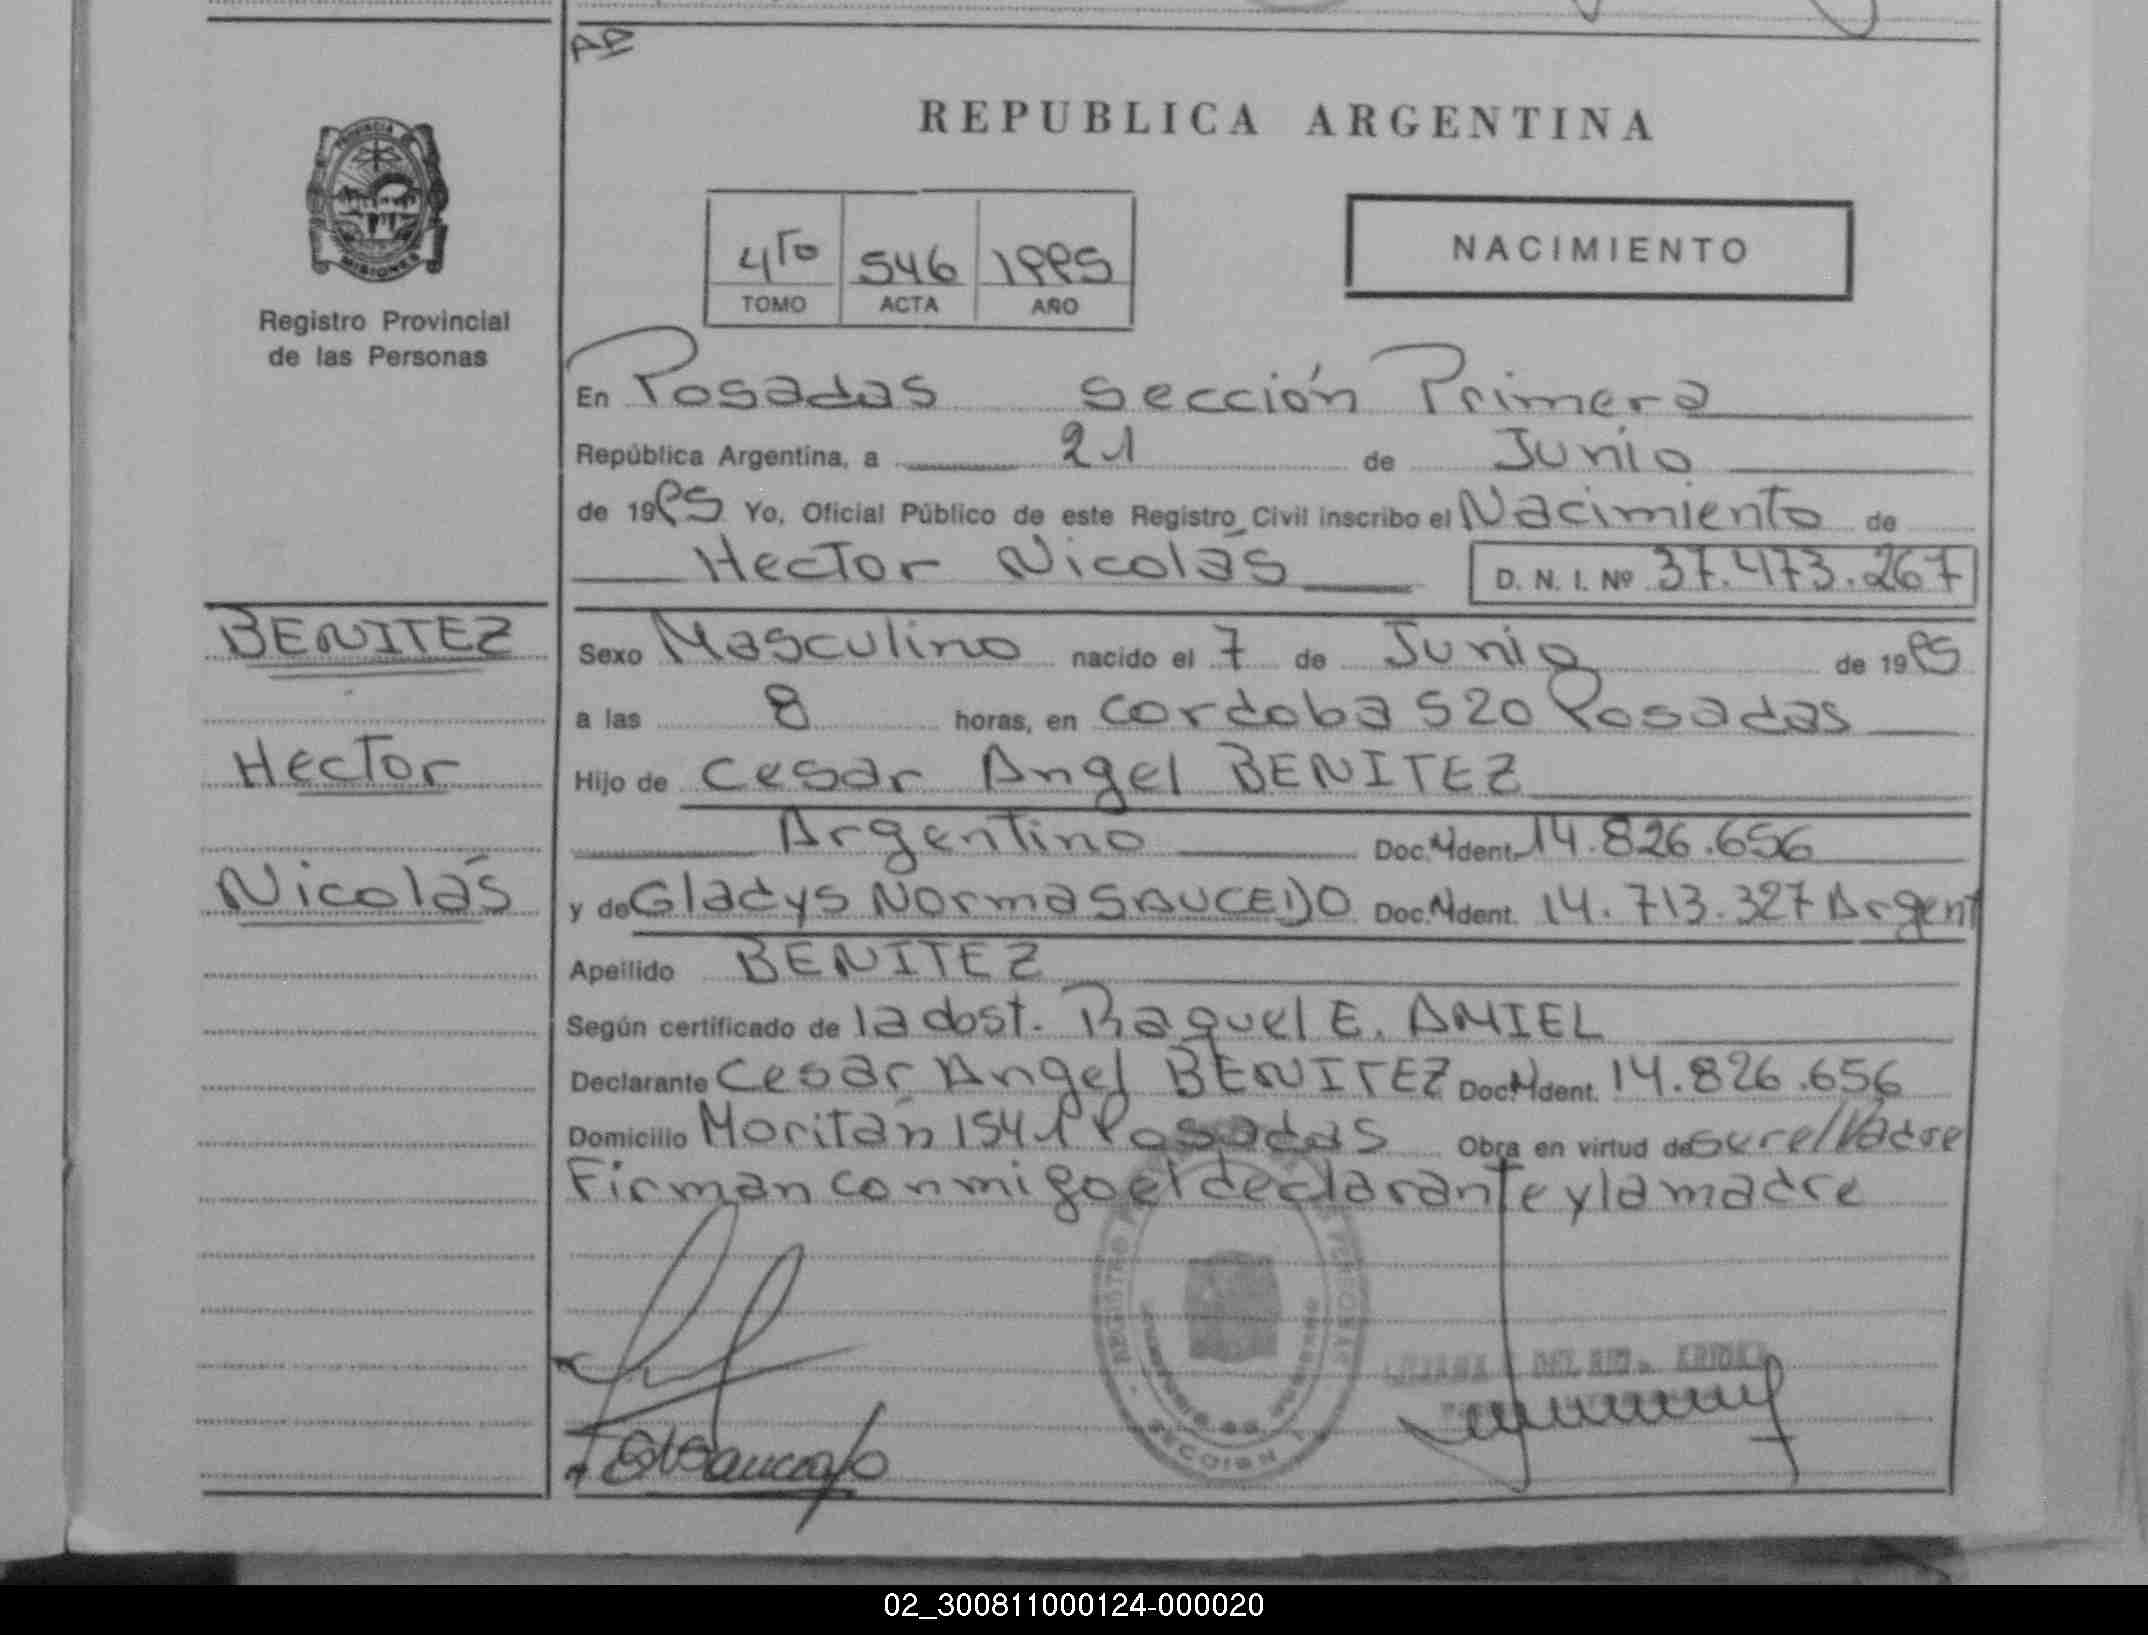 AP
PROVINCIA
MISIONES
Registro Provincial
de las Personas
REPUBLICA ARGENTINA
4to 546 1995
TOMO ACTA AÑO
NACIMIENTO
En Posadas sección Primera
República Argentina, a 21 de Junio
de 1995 Yo, Oficial Público de este Registro Civil inscribo el Nacimiento de
Hector Nicolás D. N. I. Nº 37.473.267
BENITEZ
Hector
Nicolás
Sexo Masculino nacido el 7 de Junio de 1995
a las 8 horas, en cordoba 520 Posadas
Hijo de Cesar Angel BENITEZ
Argentino Doc. Ident. 14.826.656
y de Gladys Norma SAUCEDO Doc. Ident. 14.713.327 Argent
Apellido BENITEZ
Según certificado de la obst. Raquel E. AMIEL
Declarante Cesar Angel BENITEZ Doc. Ident. 14.826.656
Domicilio Moritán 1541 Posadas Obra en virtud de
Firman conmigo el declarante y la madre
REGISTRO
SECCION 1
02_300811000124-000020